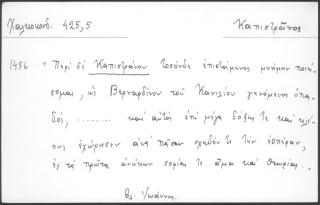 Χαλκοκονδ. 425,5 Καπιστρᾶνος
1456 "Περὶ δὲ Καπιστράνου τοσόνδε ἐπιστάμενος μνήμην ποιή-
σομαι, ὡς Βερναρδίνου τοῦ γενόμενος ὀπα-
δός, ......... καὶ αὐτὸς ἐπὶ μέγα δόξης τε καὶ κλέ-
ους ἐχώρησεν ἀνὰ πᾶσαν σχεδόν τι τὴν ἑσπέραν,
ἐς τὰ πρῶτα ἀνήκων σοφίας τε ἅμα καὶ θεωρίας..
Βλ. Ἰωάννης.